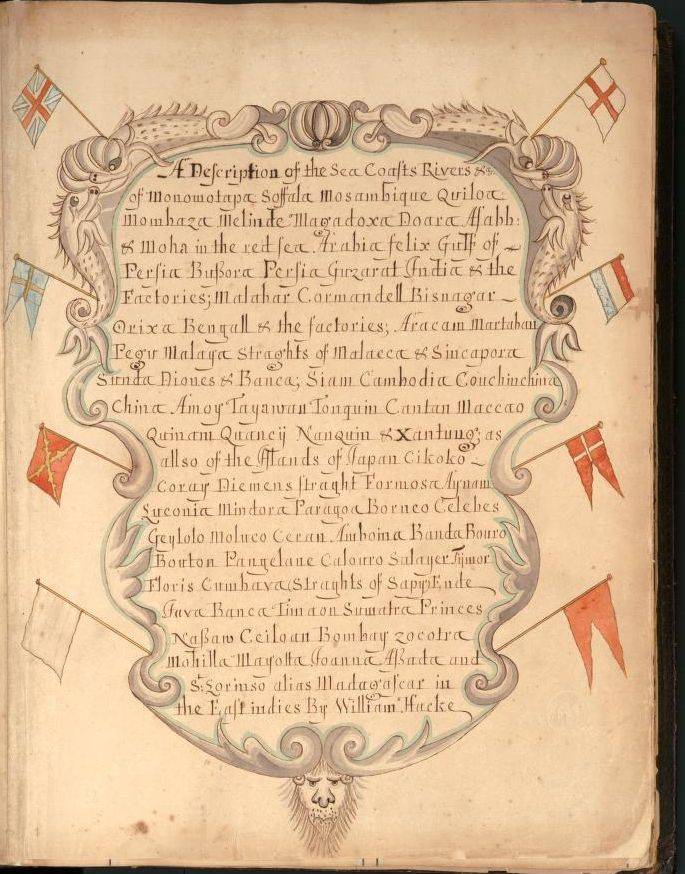 A Description of the Sea Coasts Rivers &c:
of Monomotapa Soffala Mosambique Quiloa
Mombaza Melinde Magadoxa Doara Assabb:
& Moha in the red sea. Arabia felix Gulf of
Persia Bussora Persia Guzarat India & the
Factories; Malabar Cormandell Bisnagar
Orixa Bengall & the factories; Aracam Martaban
Pegu Malaya Straghts of Malacca & Sincapora
Sunda Diones & Banca; Siam Cambodia Couchinchina
China Amoy Tayawan Tonquin Cantan Maccao
Quinam Quancij Nanquin & Xantung; as
allso of the Islands of Japan Cikoko
Coray Diemens straght Formosa Aynam
Luconia Mindora Paragoa Borneo Celebes
Geylolo Moluco Ceran Amboina Banda Bouro
Bouton Pangelane Calouro Salayer Tijmor
Floris Cumbava Straghts of Sapy Ende
Java Banca Timaon Sumatra Princes
Nassaw Ceiloan Bombay Zocotra
Mohilla Mayotta Joanna Assada and
St: Lorinso alias Madagascar in
the East indies By William Hacke